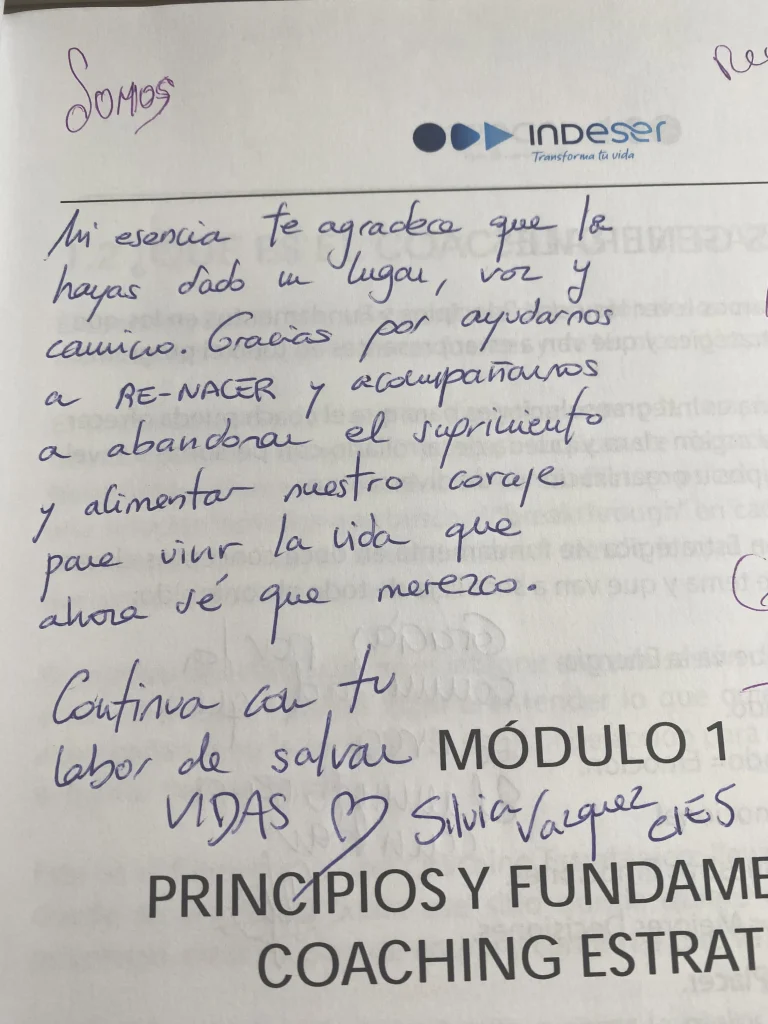 Somos
INDeser
Transforma tu vida
Mi esencia te agradece que la
hayas dado un lugar, voz y
camino. Gracias por ayudarnos
a RE-NACER y acompañarnos
a abandonar el sufrimiento
y alimentar nuestro coraje
para vivir la vida que
ahora sé que merezco.
Continua con tu
labor de salvar
VIDAS ♡ Silvia Vazquez
MÓDULO 1
PRINCIPIOS Y FUNDAME
COACHING ESTRAT